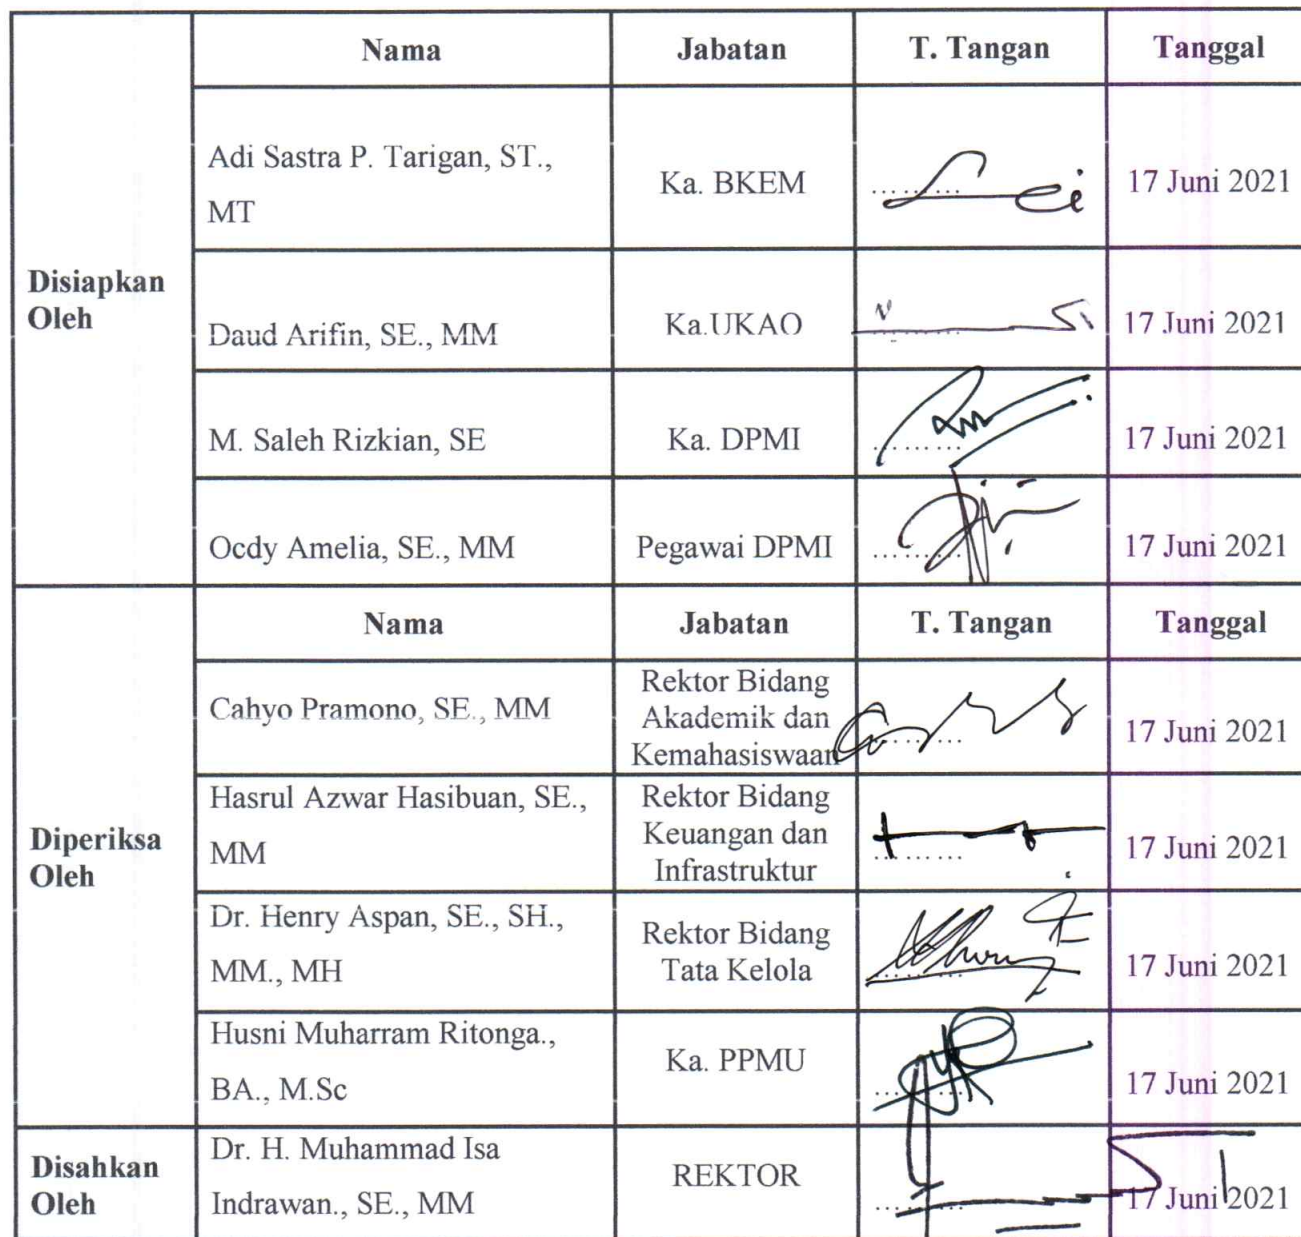 Nama Jabatan T. Tangan Tanggal
Disiapkan
Oleh
Adi Sastra P. Tarigan, ST.,
MT
Ka. BKEM
.........
17 Juni 2021
Daud Arifin, SE., MM
Ka.UKAO
.........
17 Juni 2021
M. Saleh Rizkian, SE
Ka. DPMI
.........
17 Juni 2021
Ocdy Amelia, SE., MM
Pegawai DPMI
.........
17 Juni 2021
Nama Jabatan T. Tangan Tanggal
Diperiksa
Oleh
Cahyo Pramono, SE., MM
Rektor Bidang
Akademik dan
Kemahasiswaan
.........
17 Juni 2021
Hasrul Azwar Hasibuan, SE.,
MM
Rektor Bidang
Keuangan dan
Infrastruktur
.........
17 Juni 2021
Dr. Henry Aspan, SE., SH.,
MM., MH
Rektor Bidang
Tata Kelola
.........
17 Juni 2021
Husni Muharram Ritonga.,
BA., M.Sc
Ka. PPMU
.........
17 Juni 2021
Disahkan
Oleh
Dr. H. Muhammad Isa
Indrawan., SE., MM
REKTOR
.........
17 Juni 2021